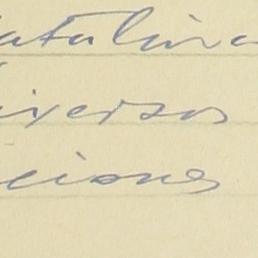 atalina
iversos
ciones